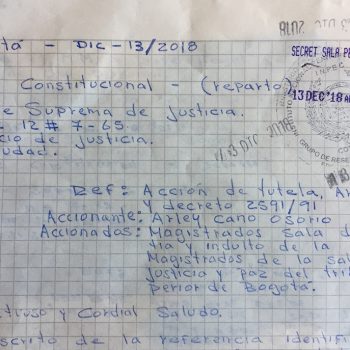 tá - DIC - 13/2018
Constitucional - (reparto)
e Suprema de Justicia.
12 # 7-65
cio de justicia.
udad.
SECRET SALA PE
13 DEC '18
Ref: Acción de tutela, Ar
y decreto 2591/91
Accionante: Arley Cano Osorio
Accionados: Magistrados Sala d
tia y indulto de la
Magistrados de la sal
Justicia y paz del tri
perior de Bogotá.
tuoso y Cordial Saludo.
scrito de la referencia identifi